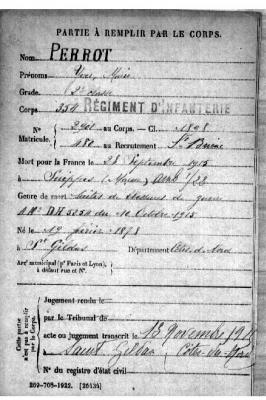 PARTIE À REMPLIR PAR LE CORPS.
Nom PERROT
Prénoms Yves Marie
Grade 2e classe
Corps 354 RÉGIMENT D'INFANTERIE
Matricule.
N° au Corps. — Cl. 1898
N° 480 au Recrutement St Brieuc
Mort pour la France le 28 Septembre 1915
à Suippes (Marne)
Genre de mort Suites de blessures de guerre
Né le 12 février 1878
à St Gildas Département Côtes du Nord
Arrt municipal (pr Paris et Lyon),
à défaut rue et N°.
Cette partie
n'est pas à remplir
par le Corps.
Jugement rendu le
par le Tribunal de
acte ou jugement transcrit le 13 Novembre
à Saint Gildas (Côtes-du-Nord)
N° du registre d'état civil
269-708-1922. [26434]